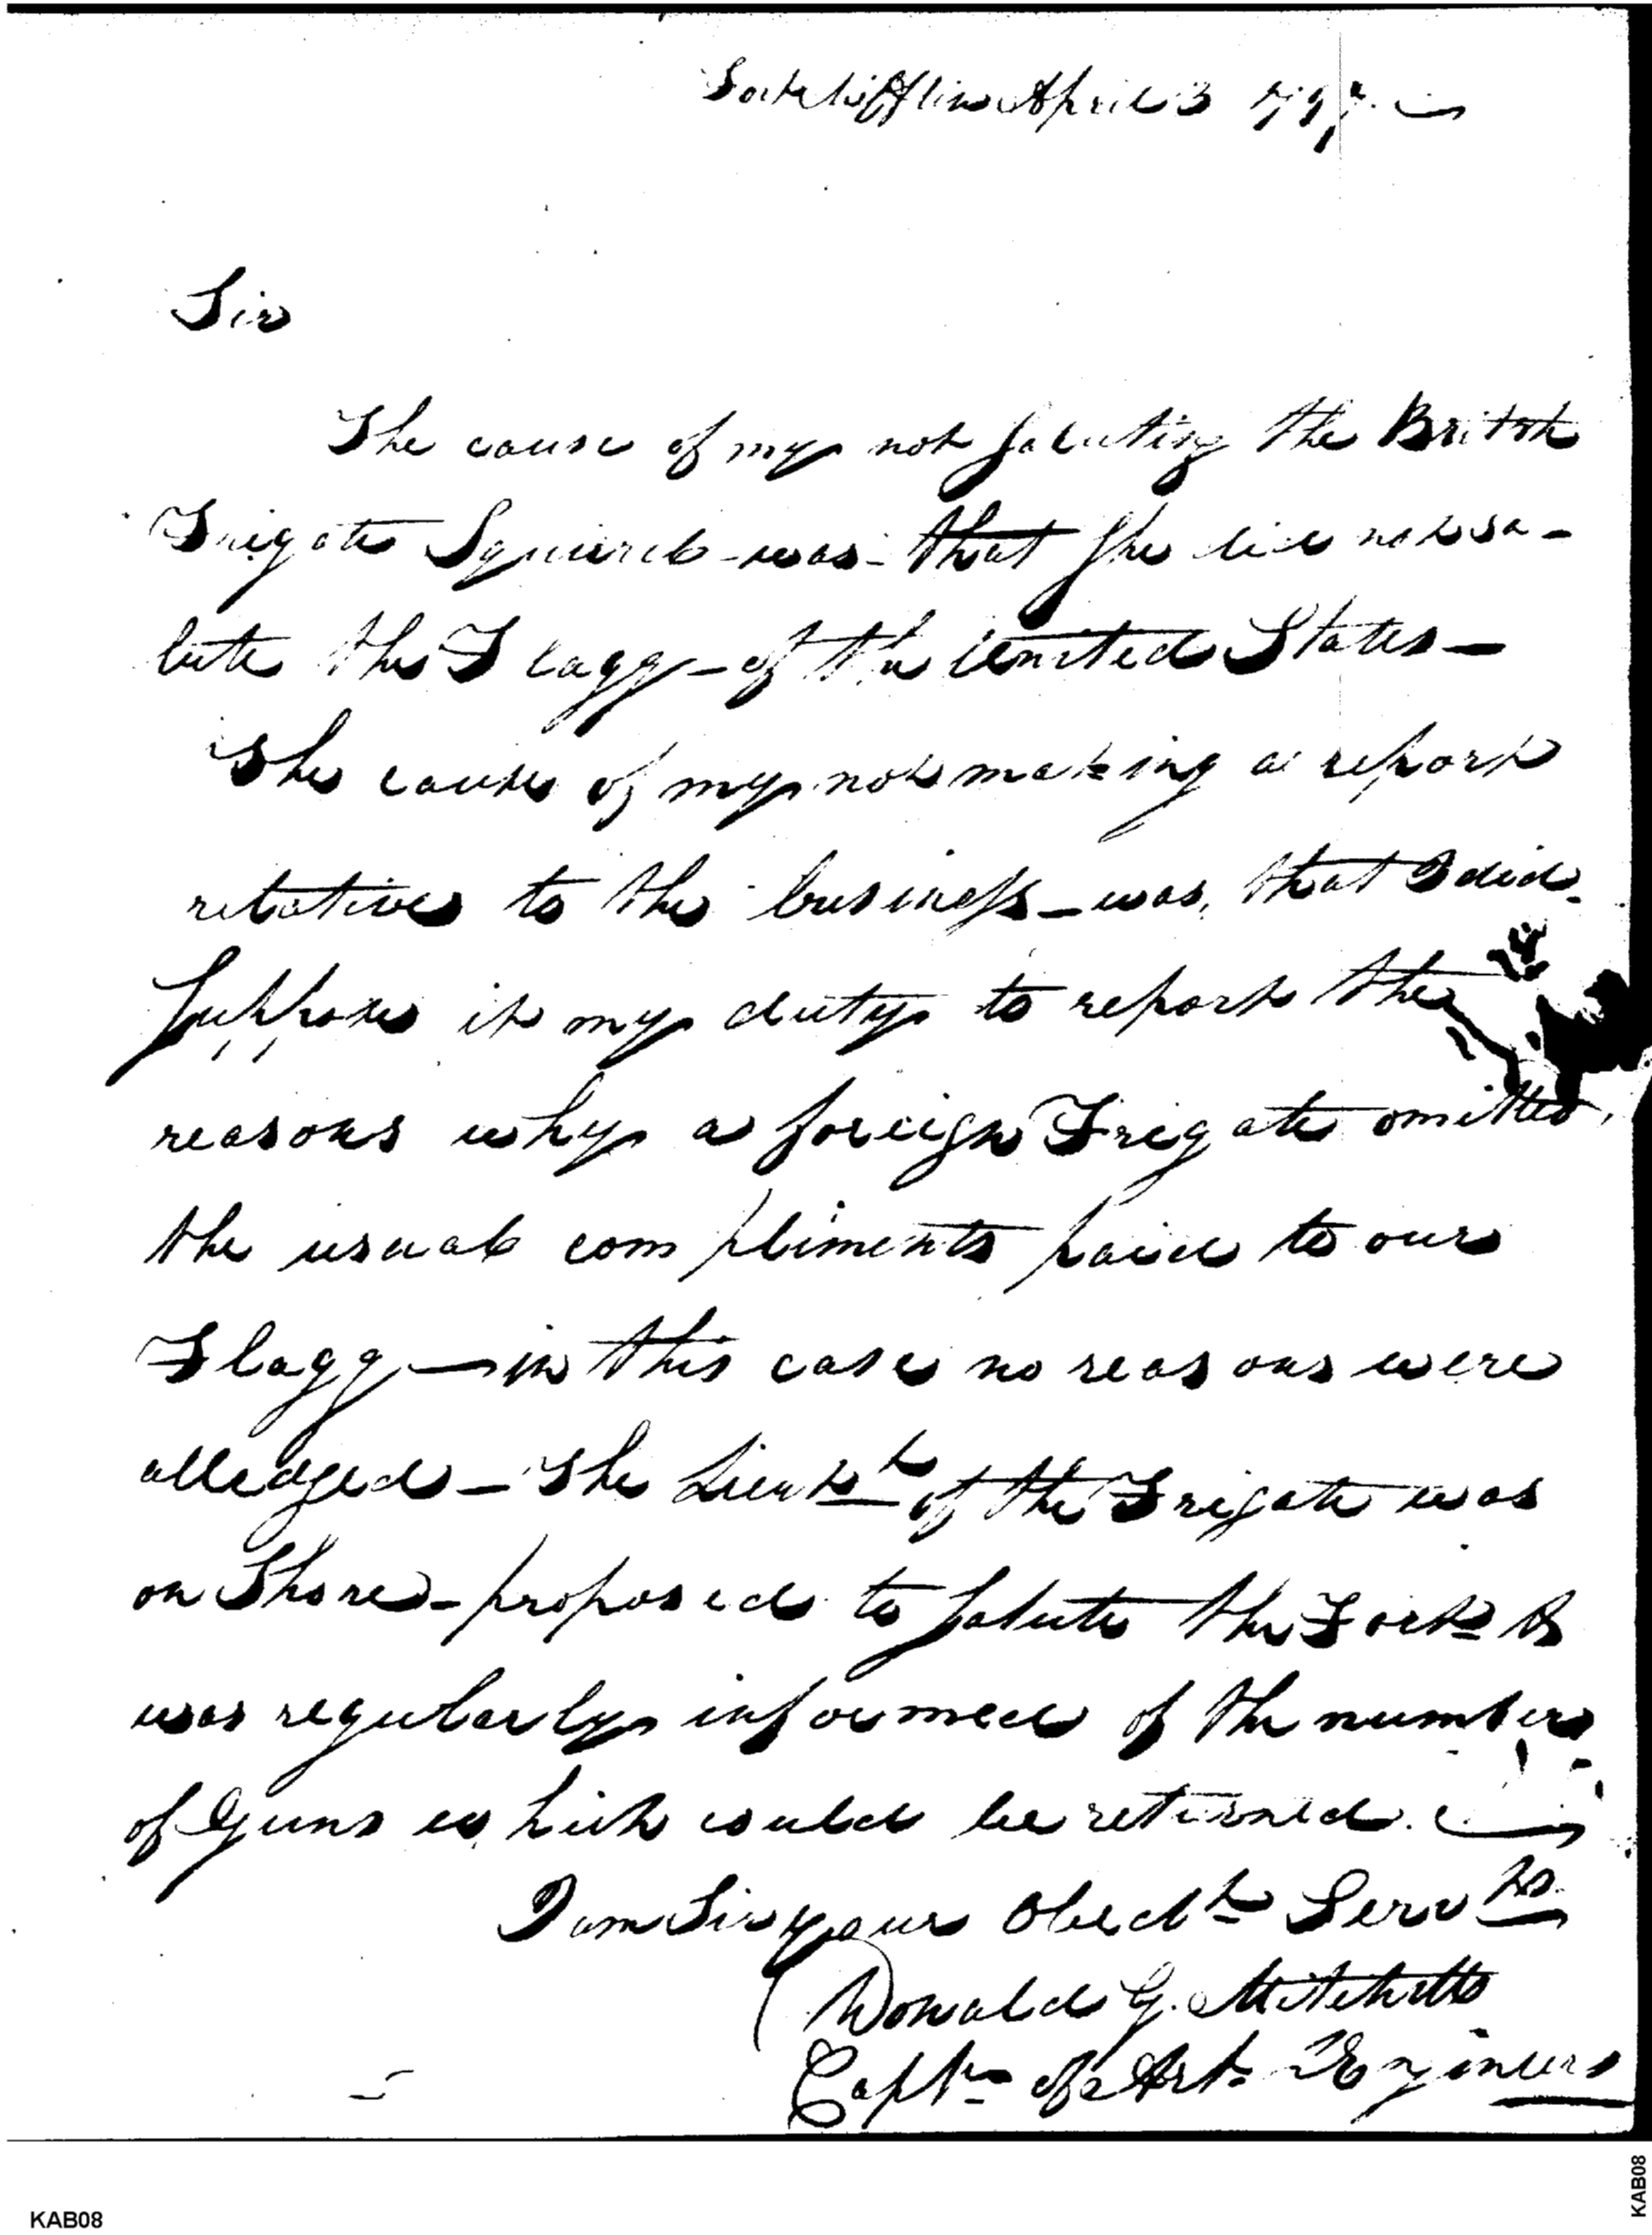 Fort Mifflin April 3 1797
Sir
The cause of my not Saluting the British
Frigate Squirrel was that She did not sa-
lute the Flagg - of the United States -
The cause of my not making a report
relative to the business - was, that I did
Suppose it my duty to report the
reasons why a foreign Frigate omitted
the usual compliments paid to our
Flagg - in this case no reasons were
alledged - The Lieut of the Frigate was
on Shore - proposed to Salute the Fort &
was regularly informed of the number
of Guns which would be returned.
I am Sir your Obedt Servt
Donald G. Mitchell
Captn of Art & Engineers
KAB08
KAB08